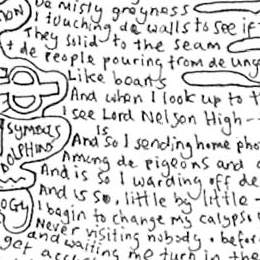 De misty greyness
I touching de walls to see if
They solid to the seam
t de people pouring from de ung
Like boarts
And when I look up to t
I see Lord Nelson High -
is
And so I sending home pho
Among de pigeons and
And is so I warding off de
And is so, little by little -
I begin to change my calypso
Never visiting nobody . befor
and waiting me turn in the
get acc
SYMBOLS
DOLPHINS
OGY